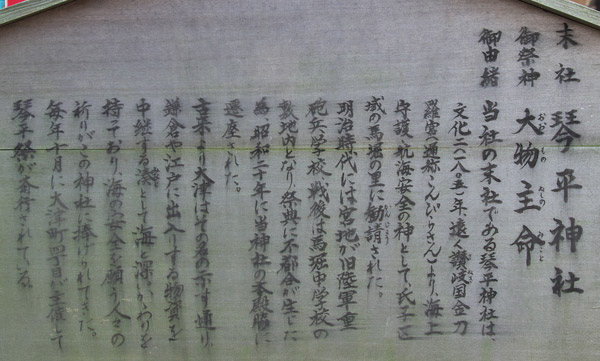 末社 琴平神社
御祭神 大物主命
おおものぬしのみこと
御由緒 当社の末社である琴平神社は、
文化二(一八〇五)年、遠く讃岐国金刀
羅宮(通称こんぴらさん)より、海上
守護・航海安全の神として、氏子区
域の馬堀の里に勧請された。
かんじょう
明治時代には宮地が旧陸軍重
砲兵学校、戦後は馬堀中学校の
敷地内となり祭典に不都合が生じた
為、昭和二十年に当神社の本殿脇に
遷座された。
古来より大津はその名の示す通り、
鎌倉や江戸に出入りする物資を
中継する湊として海と深いかかわりを
持っており、海の安全を願う人々の
祈りがこの神社に捧げられてきた。
毎年十月に大津町四丁目が主催して
琴平祭が斎行されている。